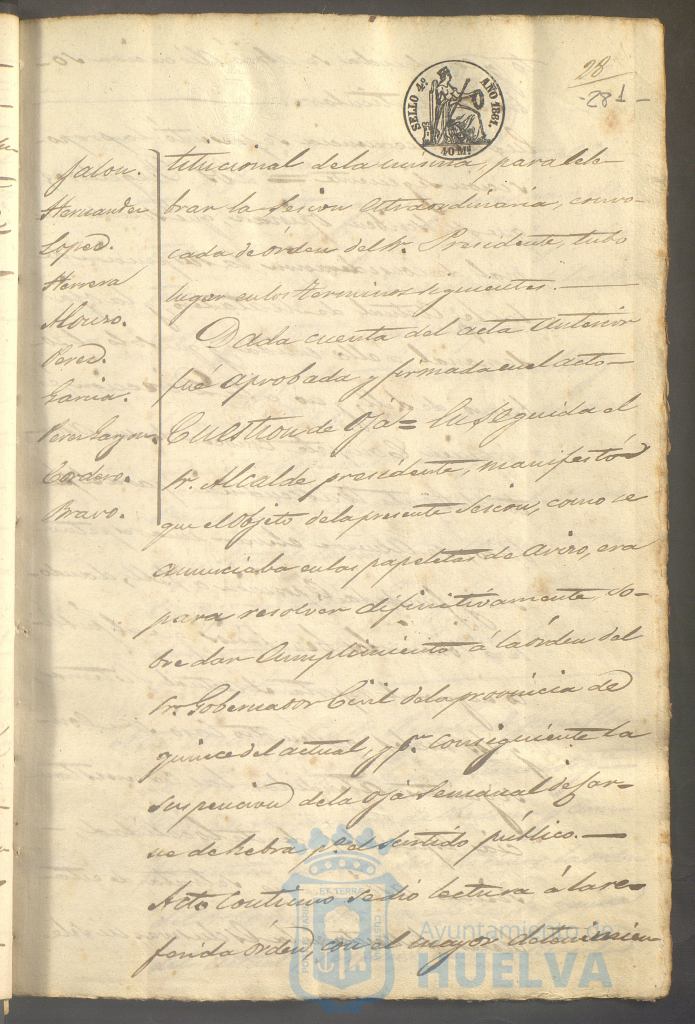 SELLO 4º AÑO 1861.
40 Ms
28
-281-
Jalon.
Hernandez
Lopez.
Herrera
Alonzo.
Perez.
Garcia.
Perez
Cordero.
Bravo.
titucional dela misma, para lele-
brar la Sesion estraordinaria, convo-
cada de órden del Sr. Presidente, tubo
lugar en los terminos siguientes.—
Dada cuenta del acta anterior
fué aprobada y firmada en el acto-
Cuestion de Oja= En seguida el
Sr. Alcalde presidente, manifestó
que el Objeto dela presente Sesion, como se
anunciaba en las papeletas de aviso, era
para resolver difinitivamente, so-
bre dar Cumplimiento á la órden del
Sr. Gobernador Civil dela provincia de
quince del actual, y pr. consiguiente la
suspencion dela Oja Semanal de car-
ne de hebra pa. el surtido público.—
Acto Continuo se dió lectura á la re-
ferida órden, con el mayor detenimien
PORTUS MARIS ET TERRAE CUSTODIA
Ayuntamiento de
HUELVA